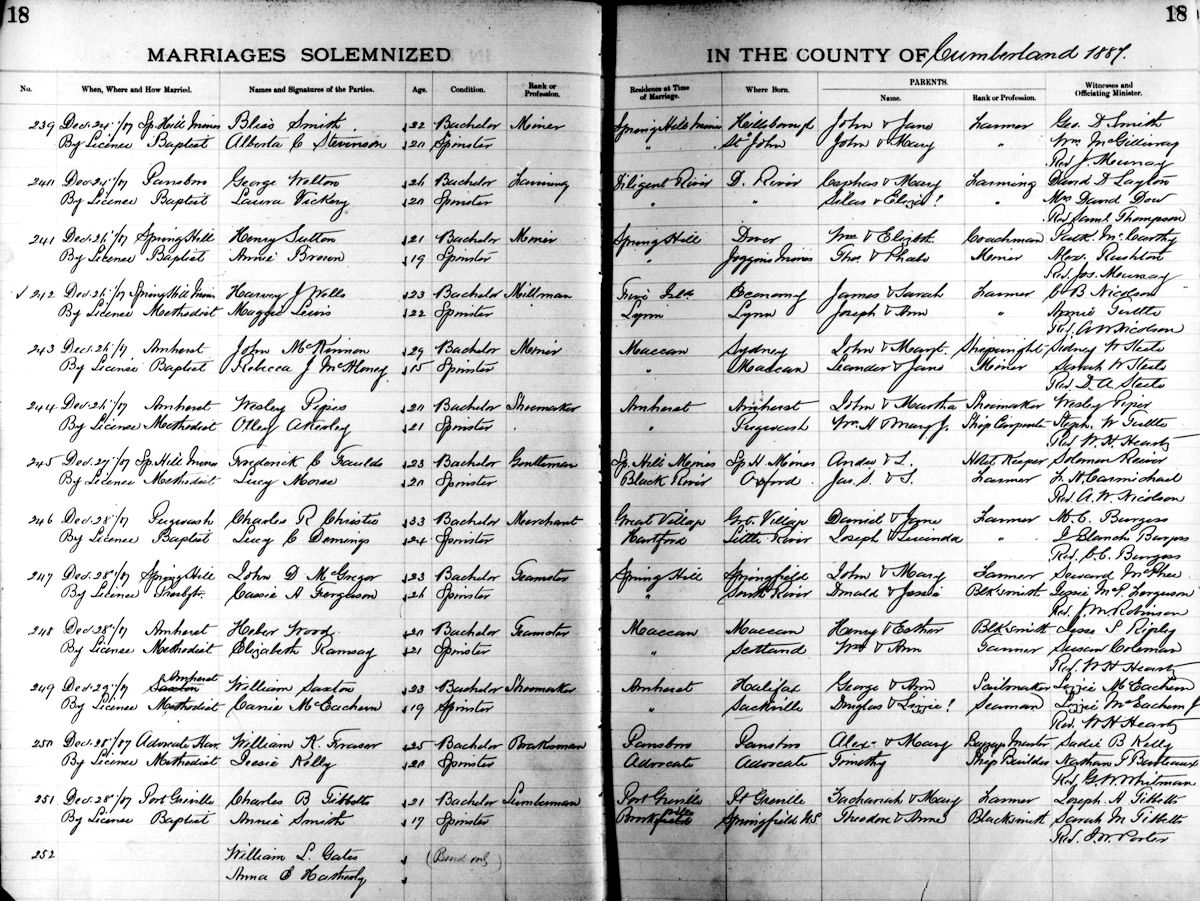 18
18
MARRIAGES SOLEMNIZED IN THE COUNTY OF Cumberland 1887.
No. When, Where and How Married. Names and Signatures of the Parties. Age. Condition. Rank or Profession. Residence at Time of Marriage. Where Born. PARENTS. Name. Rank or Profession. Witnesses and Officiating Minister.
239 Dec. 24th/87 Sp. Hill Mines Bliss Smith 22 Bachelor Miner Spring Hill Mines Hillsboro John & Jane Farmer Geo. D Smith
By License Baptist Alberta C Stevinson 20 Spinster " St. John John & Mary " Wm McGillivray
Rev J. Murray
240 Dec 24th/87 Parrsboro George Welton 26 Bachelor Farming Diligent River D. River Cephas & Mary Farming David D Layton
By License Baptist Laura Vickery 20 Spinster " " Silas & Eliza " Mrs David Dow
Rev Saml. Thompson
241 Dec. 26th/87 Spring Hill Henry Sutton 21 Bachelor Miner Spring Hill Dover Wm & Elizbth. Coachman Patk. McCarthy
By License Baptist Annie Brown 19 Spinster " Joggins Mines Thos. & Phebe Miner Alex. Rushton
Rev. Jos. Murray
242 Dec. 26th/87 Spring Hill Mines Harvey J Wells 23 Bachelor Millman Five Isls. Economy James & Sarah Farmer C B Nicolson
By License Methodist Maggie Lewis 22 Spinster Lynn Lynn Joseph & Ann " Annie Tuttle
Rev. A W Nicolson
243 Dec. 26th/87 Amherst John McKinnon 29 Bachelor Miner Maccan Sydney John & Margt. Shipwright Sidney W Steele
By License Baptist Rebecca J McHoney 15 Spinster " Maccan Leander & Jane Miner Sarah W Steele
Rev D. A Steele
244 Dec. 26th/87 Amherst Wesley Pipes 20 Bachelor Shoemaker Amherst Amherst John & Martha Shoemaker Wesley Piper
By License Methodist Otley Akerley 21 Spinster " Pugwash Wm. H & Mary J. Ship Carpent. Steph. W Tuttle
Rev. W. H Heartz
245 Dec. 27th/87 Sp. Hill Mines Frederick C Faulds 23 Bachelor Gentleman Sp. Hill Mines Sp H. Mines Andw & L. Hotel Keeper Solomon
By License Methodist Lucy Morse 20 Spinster Black River Oxford Jas. S. & S. Farmer L. H. Carmichael
Rev. A. W. Nicolson
246 Dec. 28th/87 Pugwash Charles R Christie 33 Bachelor Merchant Great Village Grt. Village Daniel & Jane Farmer C. Burgess
By License Baptist Lucy C Demings 24 Spinster Hartford Little River Joseph & Lucinda " Blanch Burgess
Rev. C. C. Burgess
247 Dec. 28th/87 Spring Hill John D McGregor 23 Bachelor Teamster Spring Hill Springfield John & Mary Farmer Seward McPhee
By License Presbyt. Cassie A Ferguson 26 Spinster " South River Donald & Jessie Blk.smith Jessie McP. Ferguson
Rev. J. M. Robinson
248 Dec. 28th/87 Amherst Heber Wood 20 Bachelor Teamster Maccan Maccan Henry & Esther Blksmith Jesse S Ripley
By License Methodist Elizabeth Ramsay 21 Spinster " Scotland Wm & Ann Ganner Susan Coleman
Rev. W. H Heartz
249 Dec. 29th/87 Saxton Amherst William Saxton 23 Bachelor Shoemaker Amherst Halifax George & Ann Sailmaker Lizzie McEachern
By License Methodist Carrie McEachern 19 Spinster " Sackville Douglas & Lizzie Seaman Lizzie McEachern
Rev. W H Heartz
250 Dec. 28th/87 Advocate Har. William K. Fraser 25 Bachelor Brakeman Parrsboro Parrsboro Alex. & Mary Baggage Master Sadie B Kelly
By License Methodist Jessie Kelly 20 Spinster Advocate Advocate Timothy Ship Builder Nathan T Benteaux
Rev. G. W. Whitman
251 Dec. 28th/87 Port Greville Charles B Tibbetts 21 Bachelor Lumberman Port Greville Pt Greville Zachariah & Mary Farmer Joseph A Tibbetts
By License Baptist Annie Smith 17 Spinster Springfield NS Theodore & Anne Blacksmith Sarah M Tibbetts
Rev. F. W. Porter
252 William L. Gates (Bond only)
Anna B Hatherly